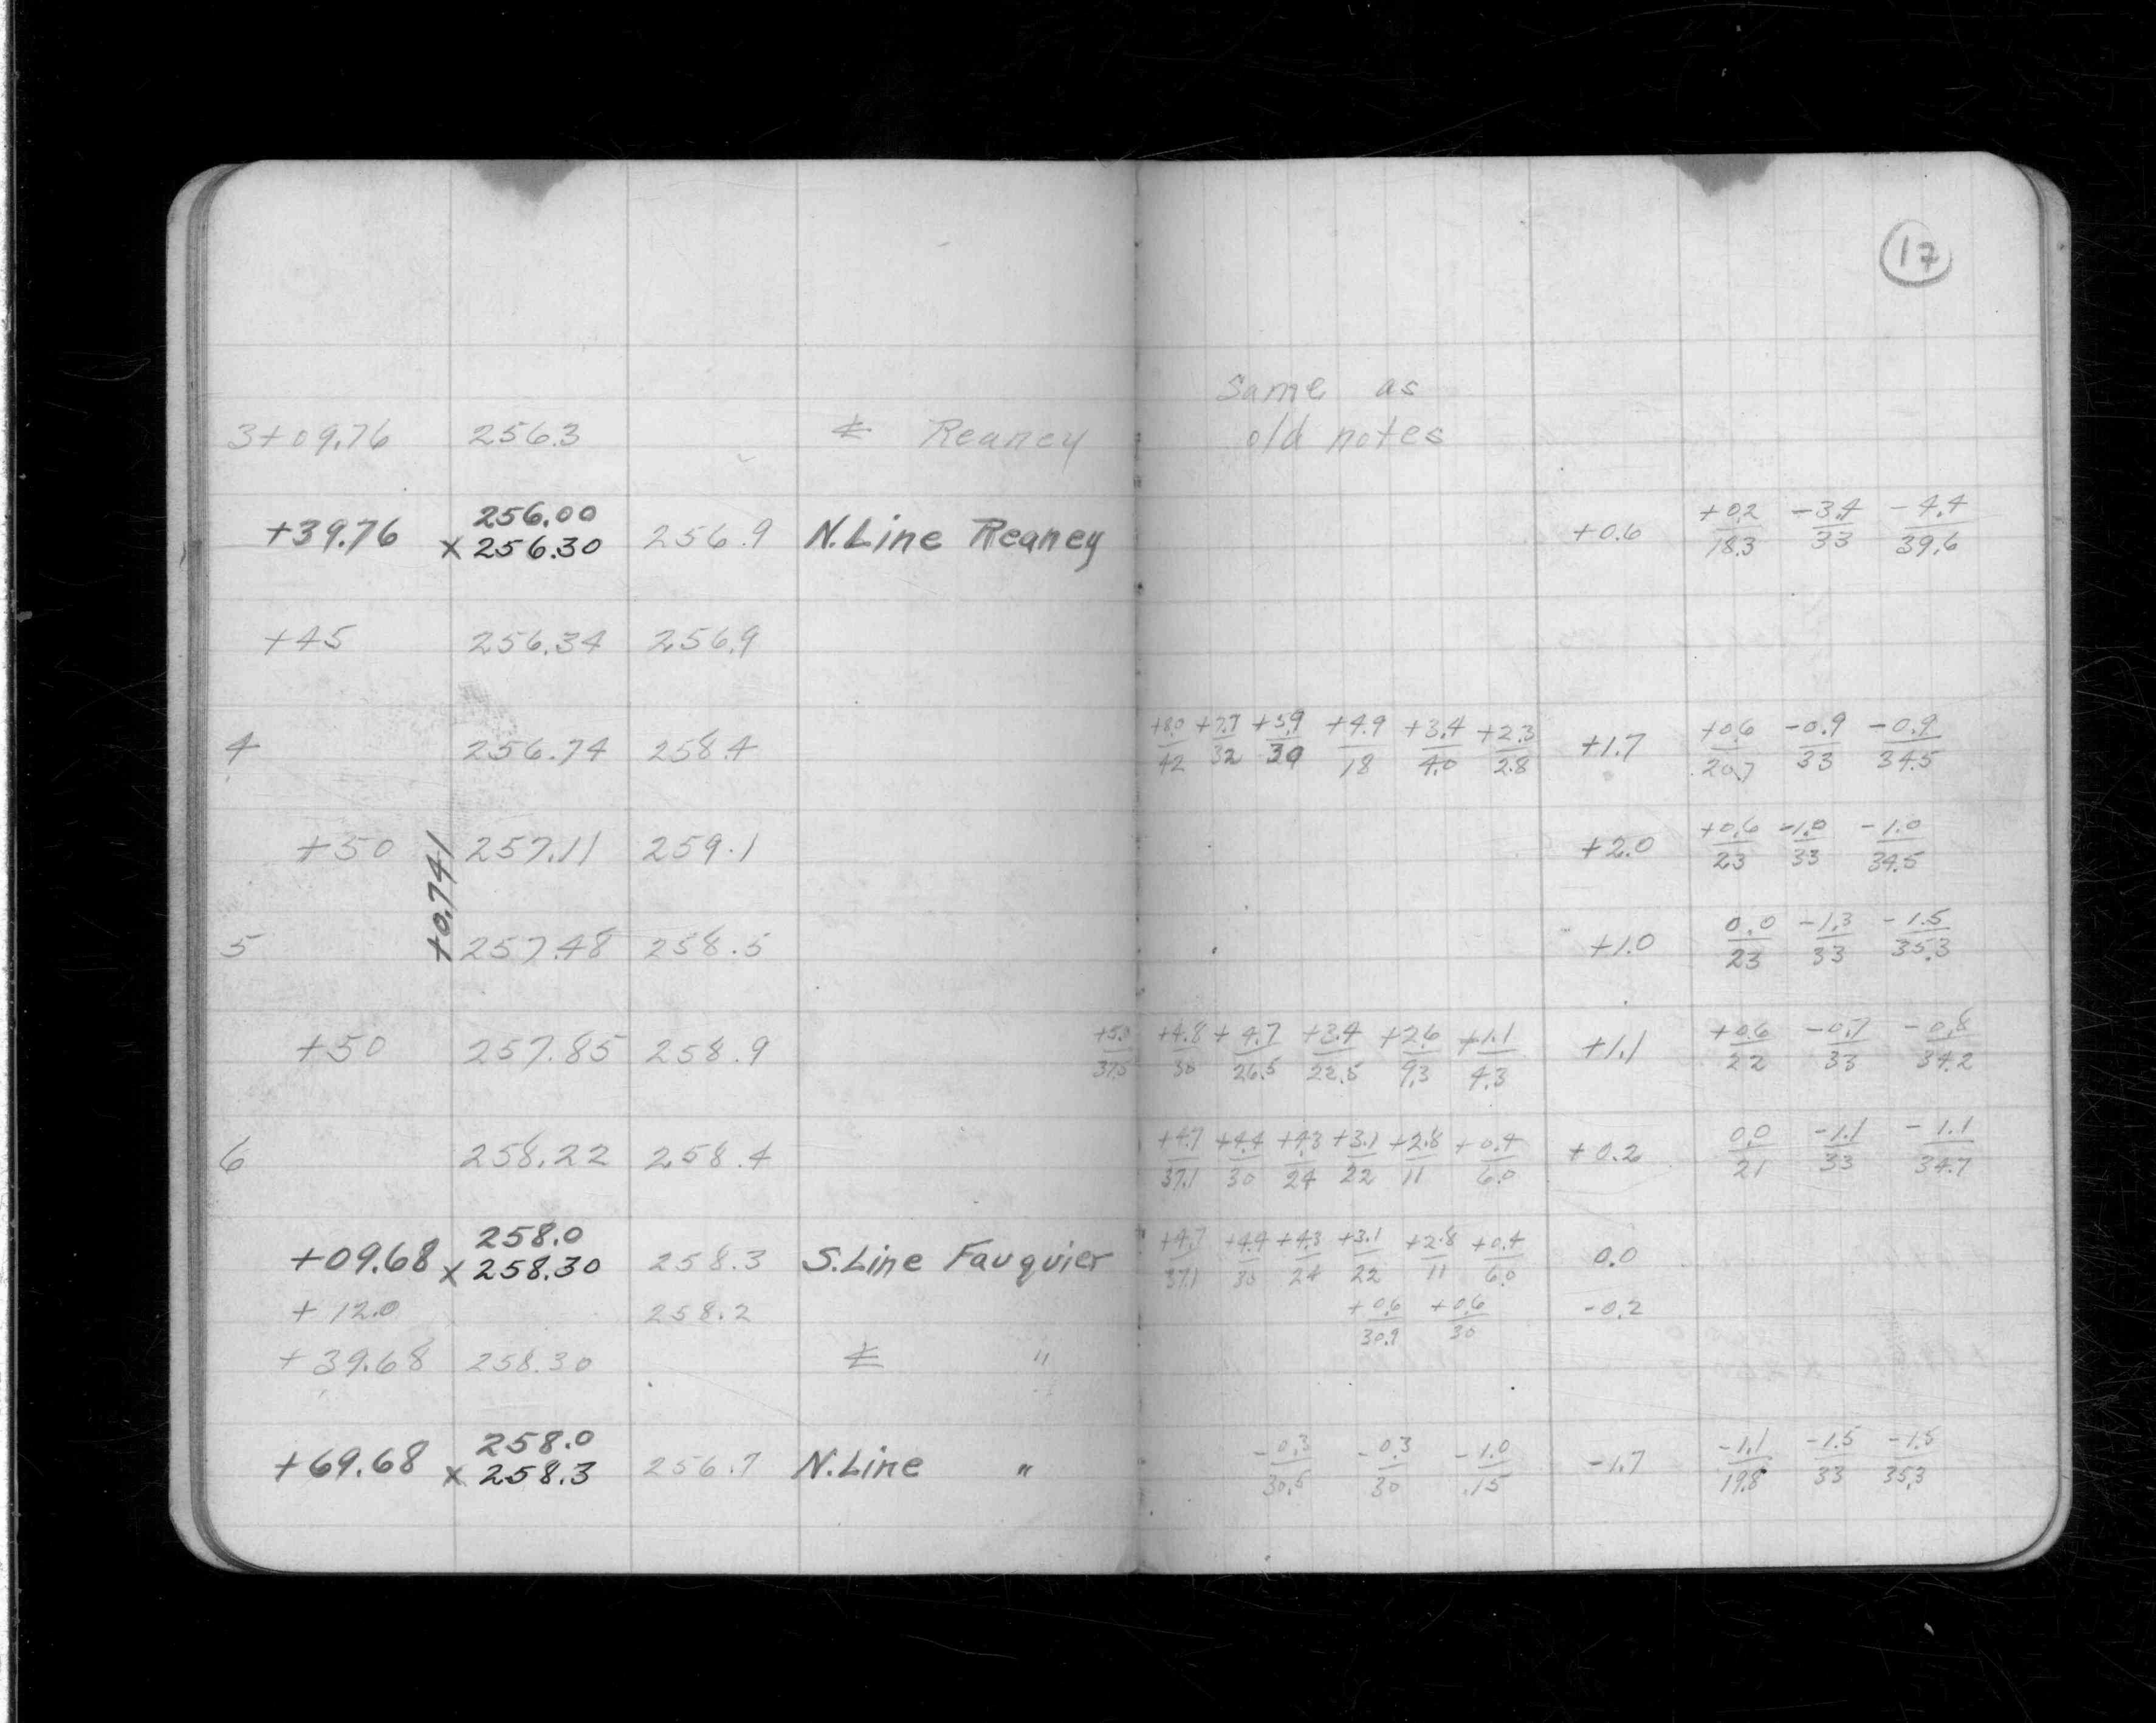 17
Same as
3+09.76 256.3 ℄ Reaney old notes
256.00
+39.76 x 256.30 256.9 N.Line Reaney +0.6 +0.2/18.3 -3.4/33 -4.4/39.6
+45 256.34 256.9
4 256.74 258.4 +8.0/42 +7.7/32 +5.9/30 +4.9/18 +3.4/4.0 +2.3/2.8 +1.7 +0.6/20.7 -0.9/33 -0.9/34.5
+50 257.11 259.1 +2.0 +0.6/23 -1.0/33 -1.0/34.5
+0.741
5 257.48 258.5 +1.0 0.0/23 -1.3/33 -1.5/35.3
+50 257.85 258.9 +5.0/37.5 +4.8/30 +4.7/26.5 +3.4/22.5 +2.6/9.3 +1.1/4.3 +1.1 +0.6/22 -0.7/33 -0.8/34.2
6 258.22 258.4 +4.7/37.1 +4.4/30 +4.3/24 +3.1/22 +2.8/11 +0.4/6.0 +0.2 0.0/21 -1.1/33 -1.1/34.7
258.0
+09.68 x 258.30 258.3 S.Line Fauquier +4.7/37.1 +4.4/30 +4.3/24 +3.1/22 +2.8/11 +0.4/6.0 0.0
+12.0 258.2 +0.6/30.9 +0.6/30 -0.2
+39.68 258.30 ℄ "
258.0
+69.68 x 258.3 256.7 N.Line " -0.3/30.5 -0.3/30 -1.0/15 -1.7 -1.1/19.8 -1.5/33 -1.5/35.3